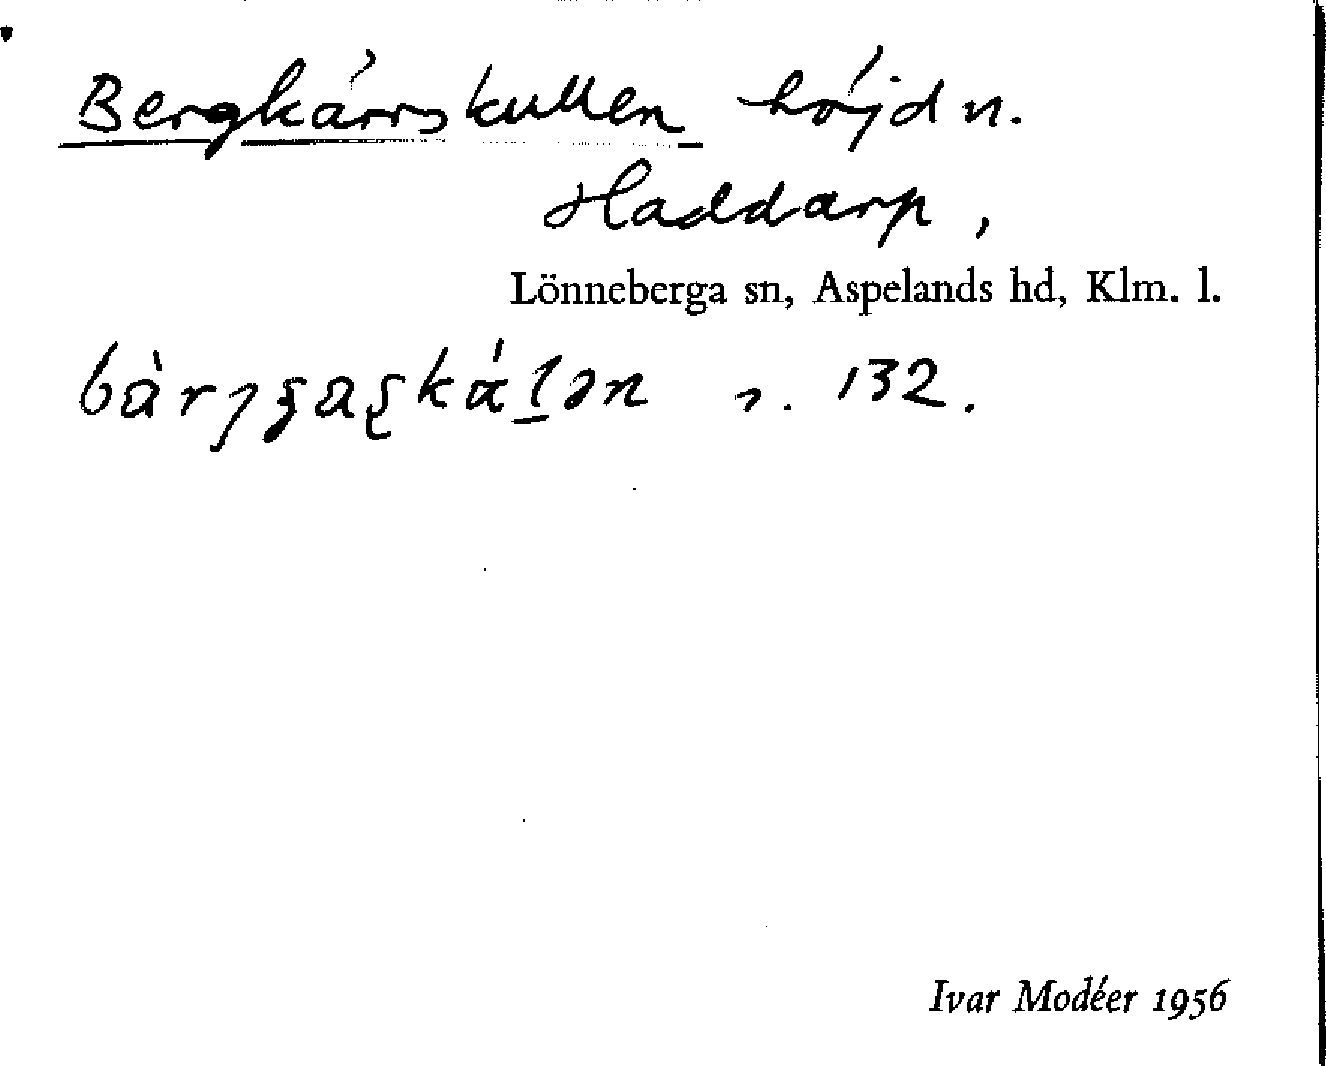 Bergkärrskullen höjdn.
Haddarp,
Lönneberga sn, Aspelands hd, Klm. l.
132.
Ivar Modéer 1956